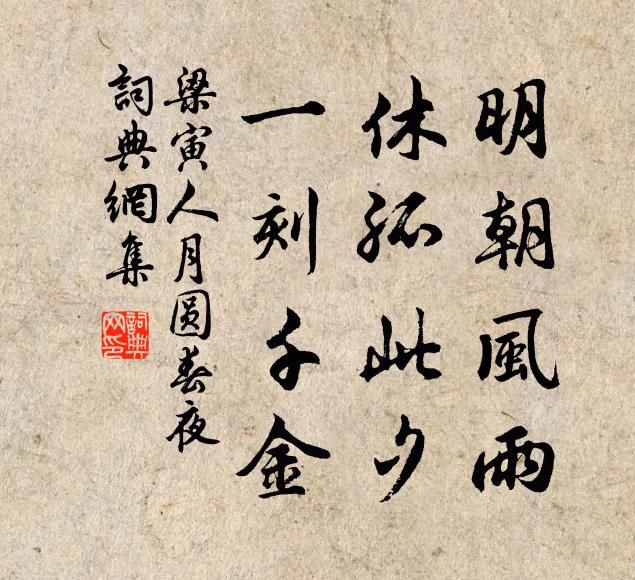 明朝風雨
休孤此夕
一刻千金
梁寅人月圆春夜
詞典網集
詞典网印